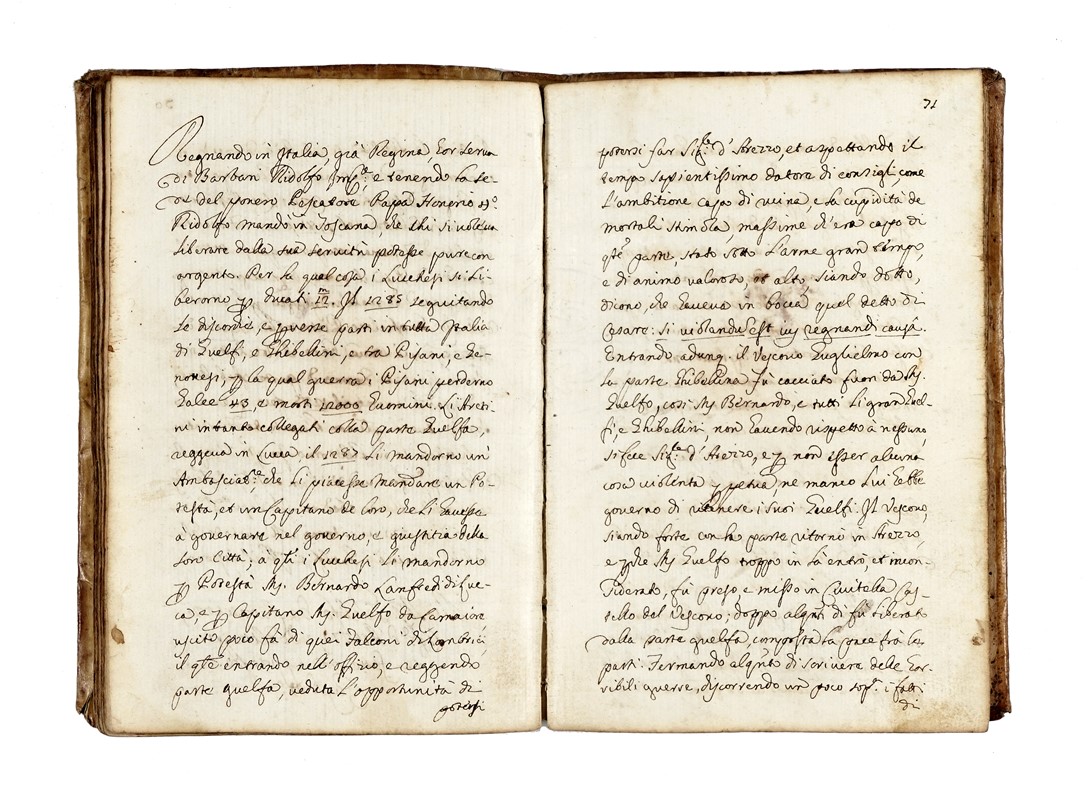 Regnando in Italia, già Regina, hor serva
di Barbari Ridolfo Imp.re, e tenendo la se-
de del povero Pescatore Papa Honorio 4.o
Ridolfo mandò in Toscana, che chi si voleva
liberare dalla sua servitù potesse pure con
argento. Per la qual cosa i Lucchesi si li-
berorno p ducati 12.m Il 1285 seguitando
le discordie, e diverse parti in tutta Italia
di Guelfi, e Ghibellini, e tra Pisani, e Ge-
novesi, p la qual guerra i Pisani perderno
Galee 43, e morti 12000 huomini. Li Areti-
ni intanto collegati colla parte Guelfa,
reggeva in Lucca il 1287 li mandorno un
Ambasciat.re, che li piacesse mandare un Po-
testà, et un Capitano de loro, che li havesse
à governare nel governo, e giustitia della
loro Città; à q.ti i Lucchesi li mandorno
p Potestà M. Bernardo Lanfredi di Luc-
ca, e p Capitano M. Guelfo da Camaiore
uscito poco fà di quei Falconi di Lombrici,
il q.le entrando nell'offizio, e reggendo
parte guelfa, veduta l'opportunità di
potersi
71
potersi far Sig.re d'Arezzo, et aspettando il
tempo sapientissimo datore di consigli, come
l'ambitione capo di ruine, e la cupidità de
mortali stimola, massime ch'era capo di
q.ta parte, stato sotto l'arme gran tempo,
e di animo valoroso, et alto, siando dotto,
dicono, che haveva in bocca quel detto di
Cesare: si violandu est ius regnandi causâ.
Entrando adunq. il Vescovo Guglielmo con
la parte Ghibellina fù cacciato fuori da M.
Guelfo, così M. Bernardo, e tutti li grandi Guel-
fi, e Ghibellini, non havendo rispetto à nessuno,
si fece Sig.re d'Arezzo, e p non esser alcuna
cosa violenta ppetua, ne manco lui hebbe
governo di ritenere i suoi Guelfi. Il Vescovo,
siando forte con la parte ritornò in Arezzo,
e pche M. Guelfo troppo in là entrò, et incon-
siderato, fù preso, e misso in Civitella Cas-
tello del Vescovo; doppo alq.ti dì fù liberato
dalla parte guelfa, composta la pace frà le
parti. Fermando alq.to di scrivere delle hor-
ribili guerre, discorrendo un poco sop.a i fatti
di